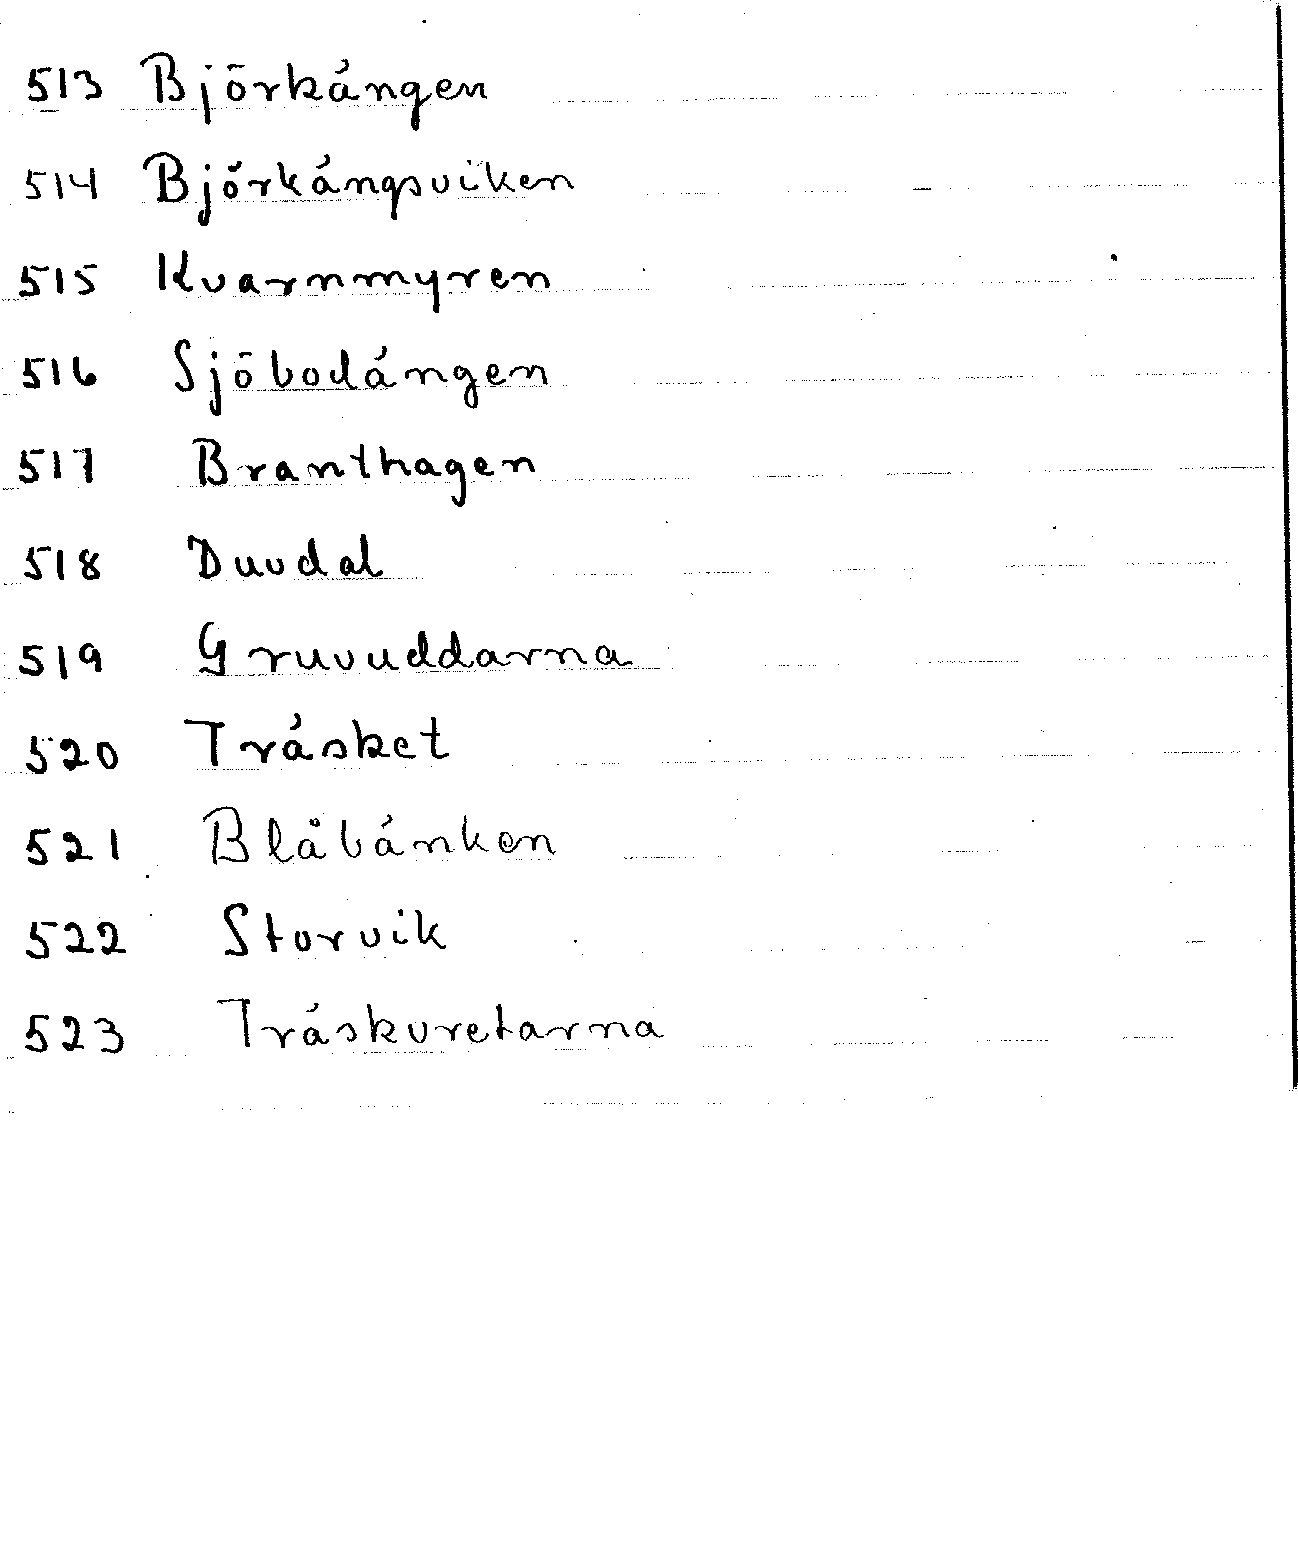 513 Björkängen
514 Björkängsviken
515 Kvarnmyren
516 Sjöbodängen
517 Branthagen
518 Duvdal
519 Gruvuddarna
520 Träsket
521 Blåbänken
522 Storvik
523 Träskvretarna